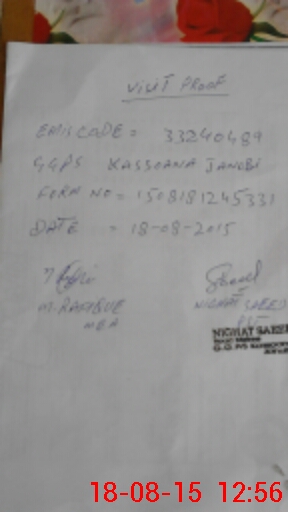 VISIT PROOF
EMIS CODE = 33240489
GGPS KASSOANA JANUBI
FORM NO = 1508181245331
DATE = 18-08-2015
M. RAFIQUE
MEA
NIGHAT SAEED
PST
NIGHAT SAEED
18-08-15 12:56